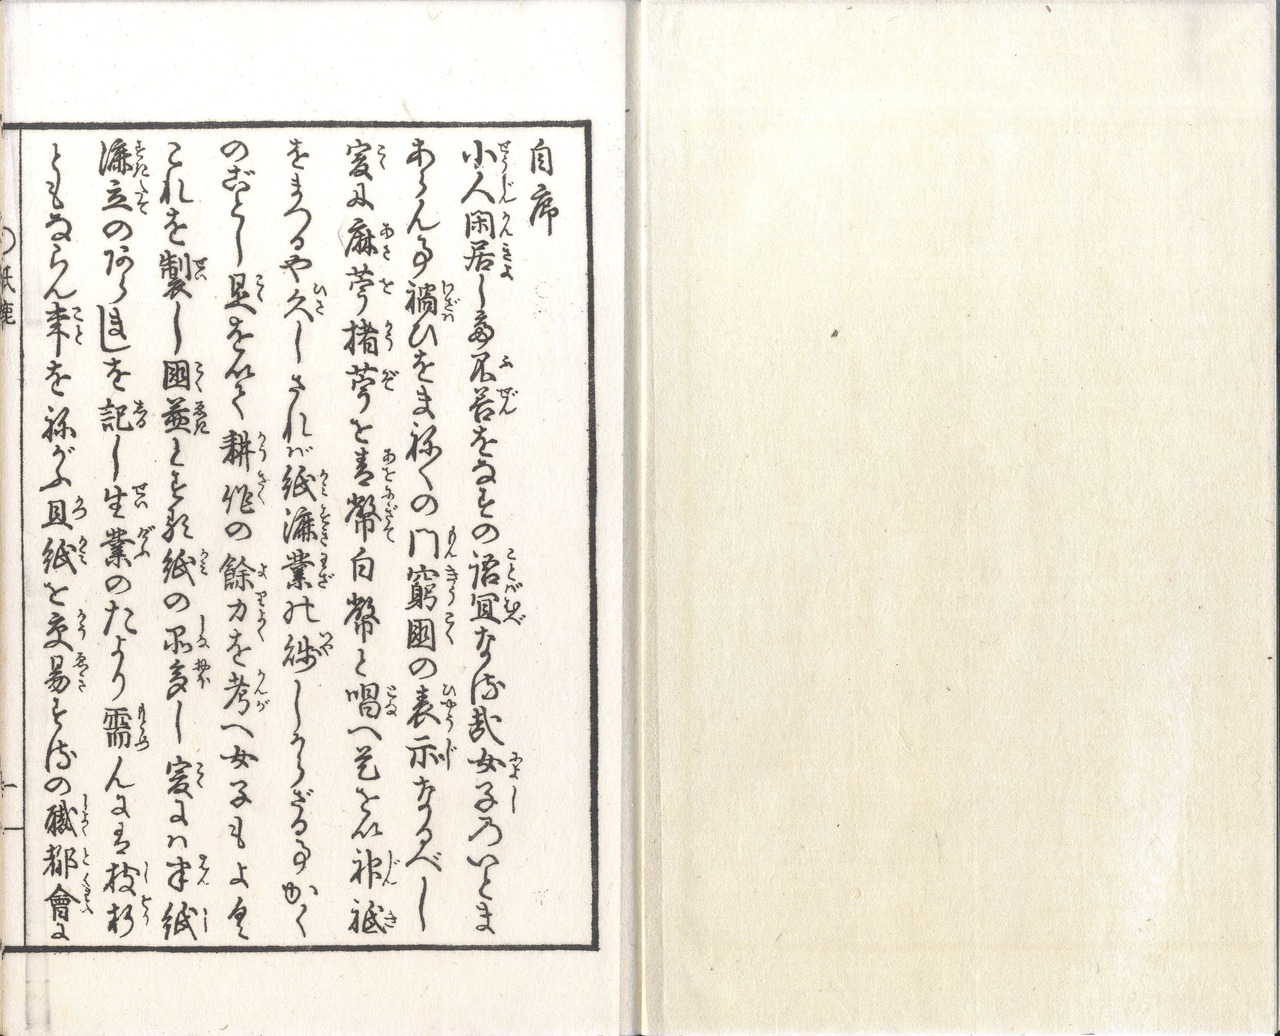 自序
小人閑居し為不善をなすの語宜なる哉女子のいとま
あらん事禍ひをまねくの門窮困の表示なるべし
爰に麻苧楮苧を青幣白幣と唱へ是を以神祇
をまつるや久しされば紙漉業の賤しからざる事かく
のごとし是を以て耕作の餘力を考へ女子もよく
これを製し國益とする紙の品多し爰には半紙
漉立のあらましを記し生業のたより需んには枝折
ともならん事をねがふ且紙を交易するの職都會に